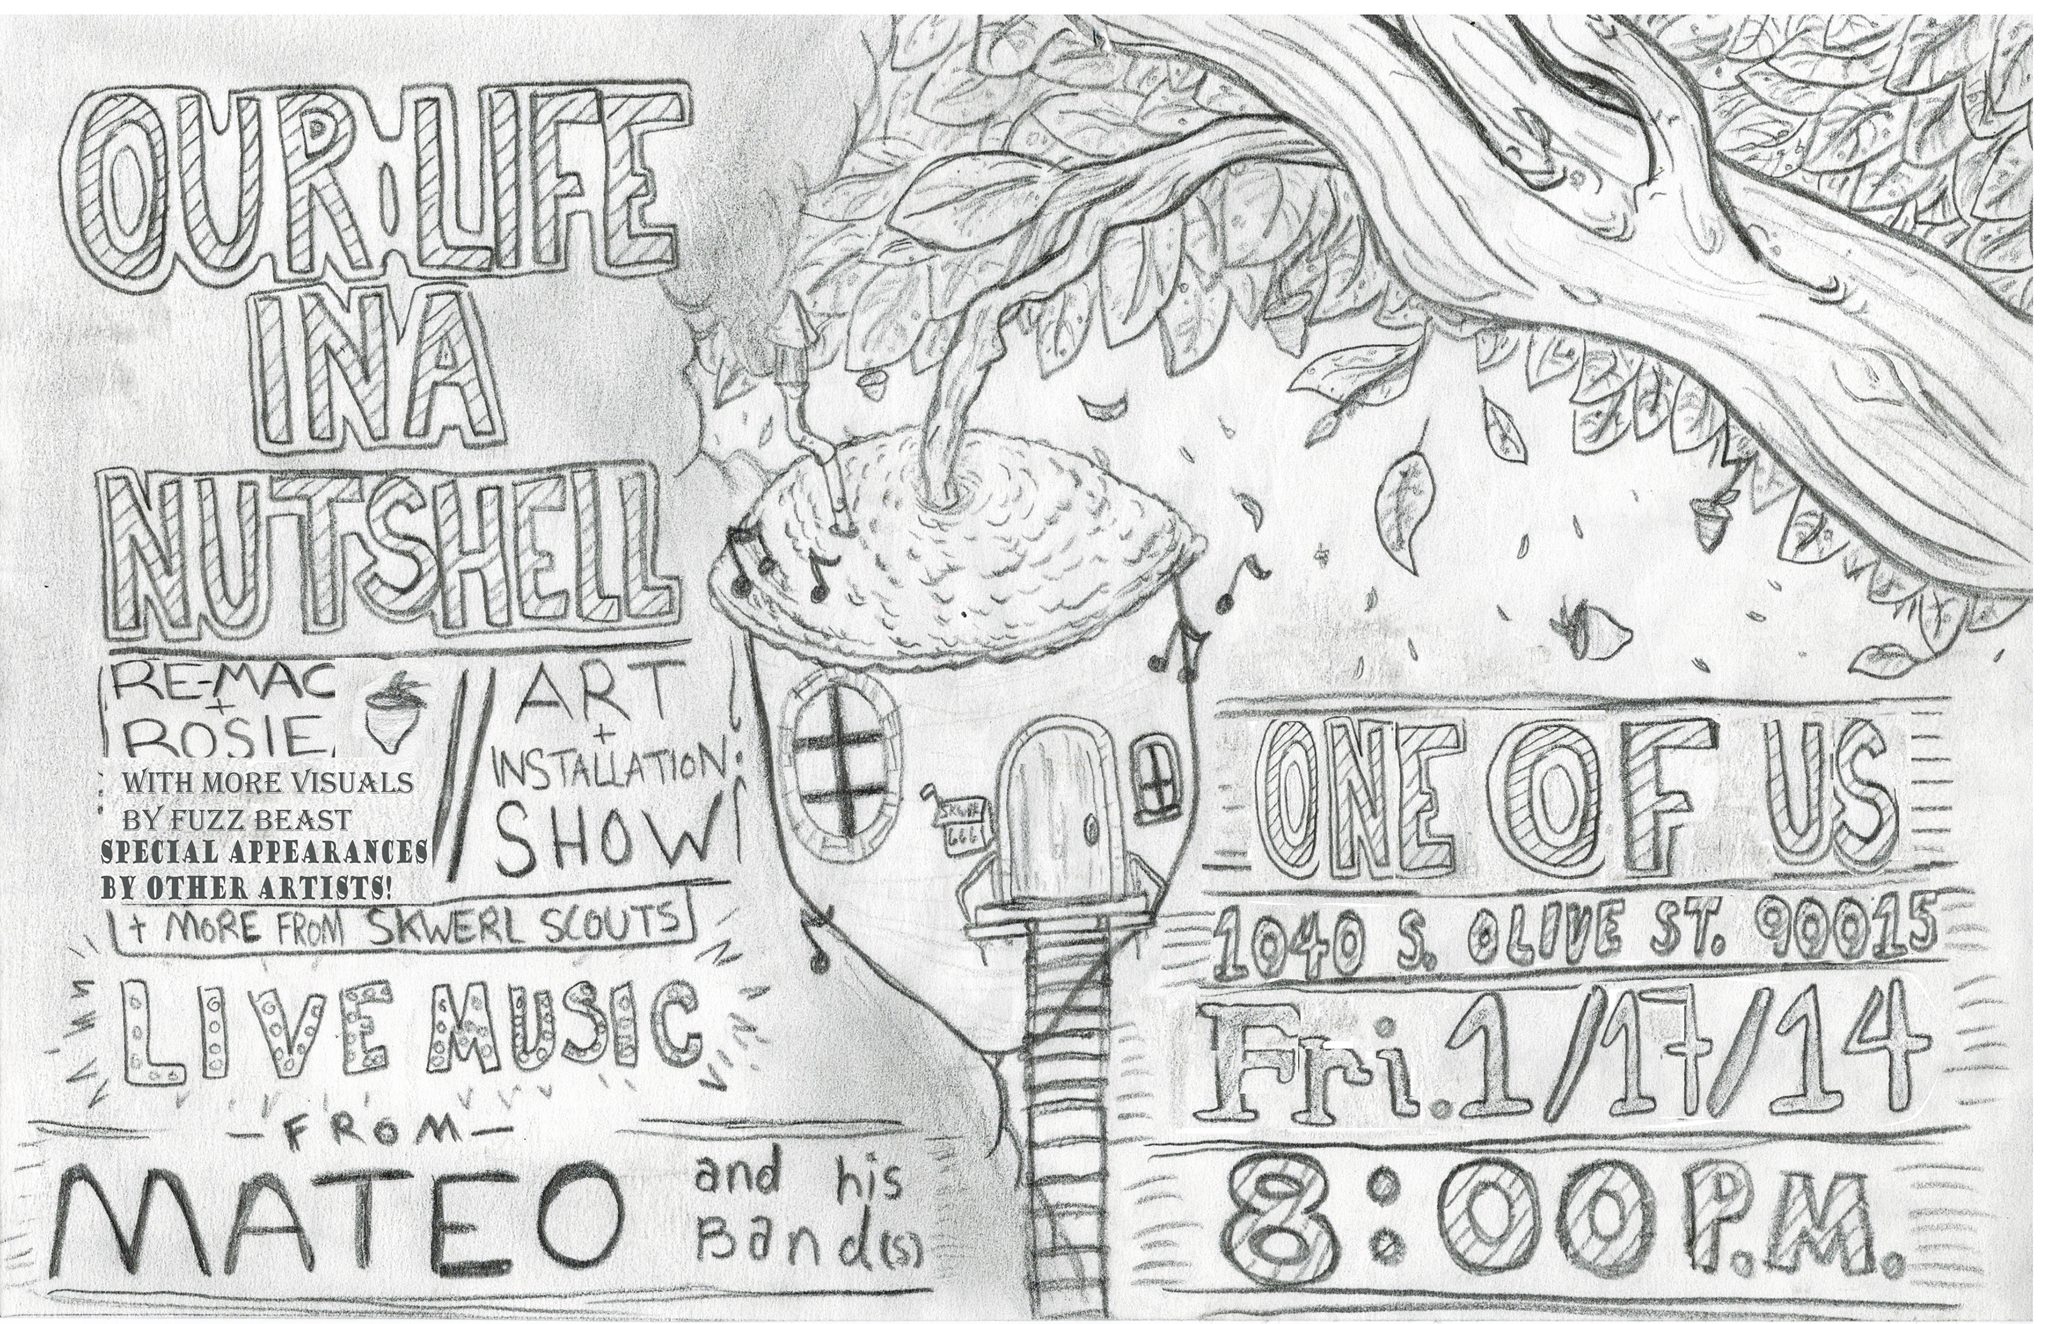 OUR LIFE
IN A
NUTSHELL
RE-MAC
+
ROSIE
WITH MORE VISUALS
BY FUZZ BEAST
SPECIAL APPEARANCES
BY OTHER ARTISTS!
ART
+
INSTALLATION
SHOW
+ MORE FROM SKWERL SCOUTS
LIVE MUSIC
- FROM -
MATEO
and his
Band(s)
666
ONE OF US
1040 S. OLIVE ST. 90015
Fri. 1/17/14
8:00 P.M.